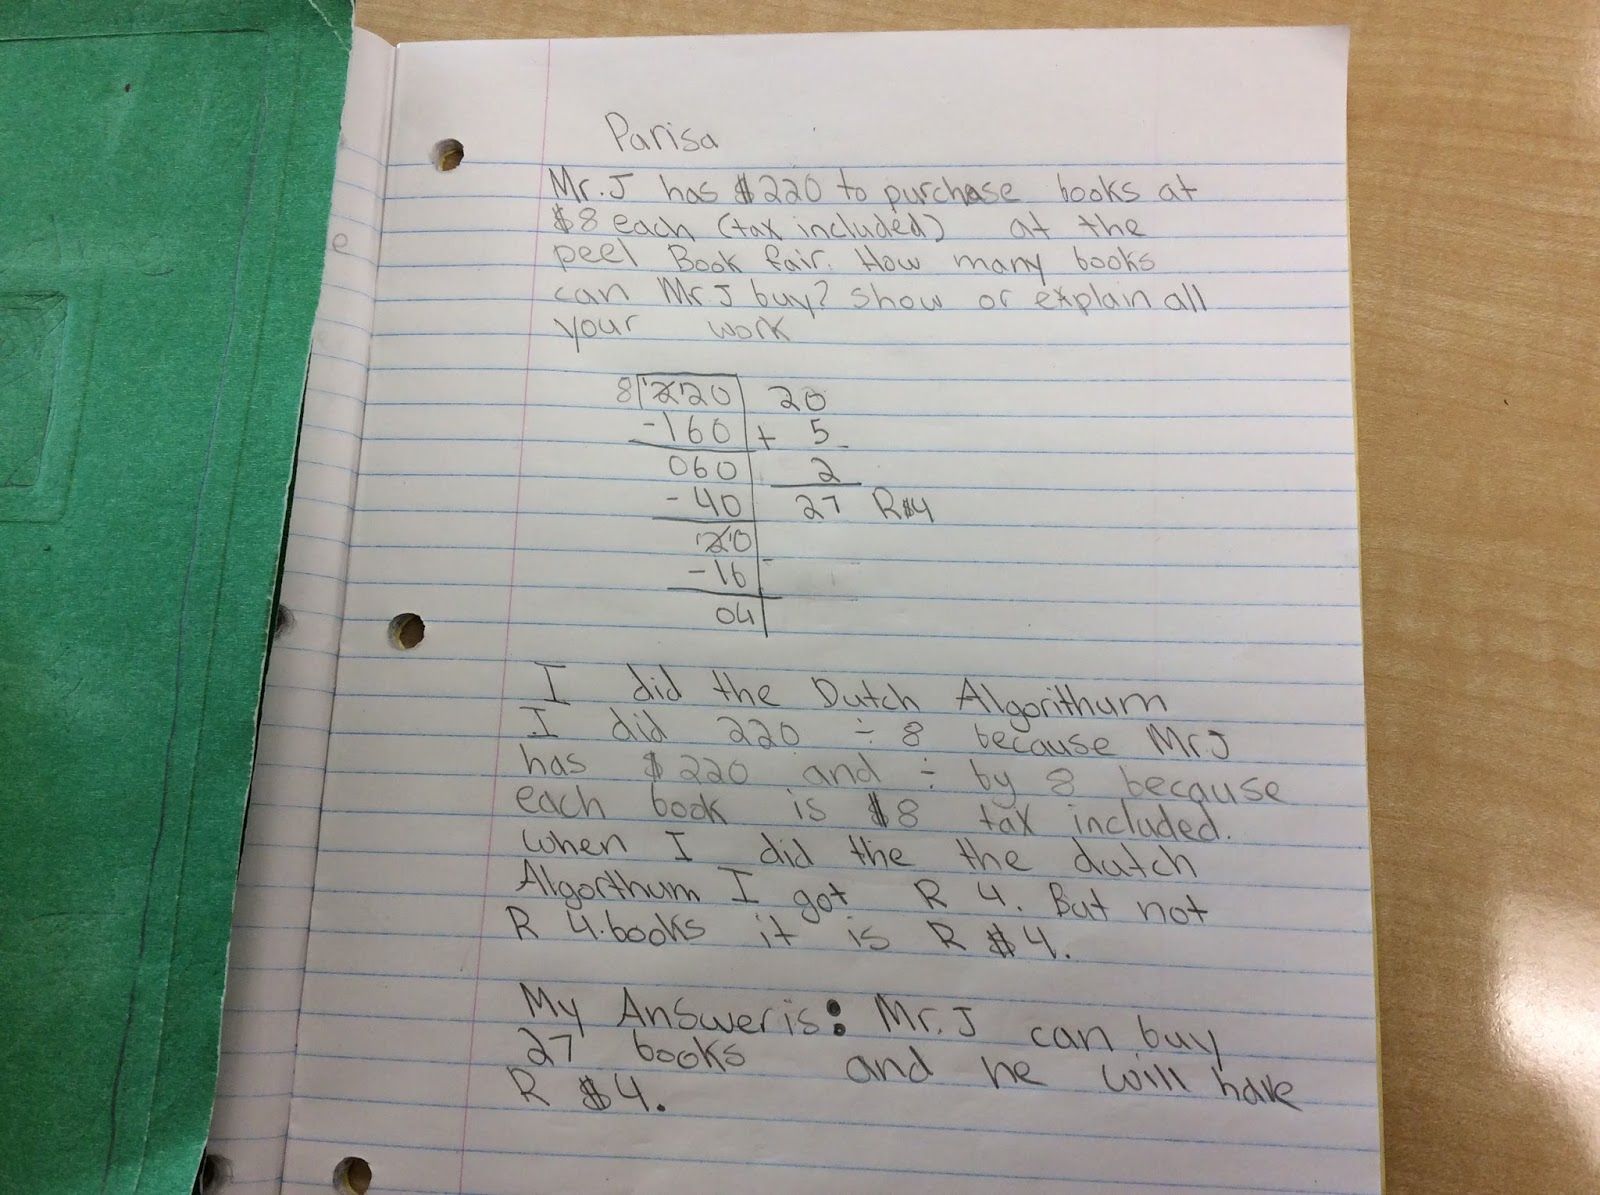 Parisa
Mr. J has $220 to purchase books at
$8 each (tax included) at the
peel Book fair. How many books
can Mr J buy? show or explain all
your work
8 220 20
-160 + 5
060 2
-40 27 R$4
20
-16
04
I did the Dutch Algorithum
I did 220 ÷ 8 because Mr.J
has $220 and ÷ by 8 because
each book is $8 tax included.
when I did the the dutch
Algorthum I got R 4. But not
R 4.books it is R $4.
My Answer is: Mr.J can buy
27 books and he will have
R $4.
e